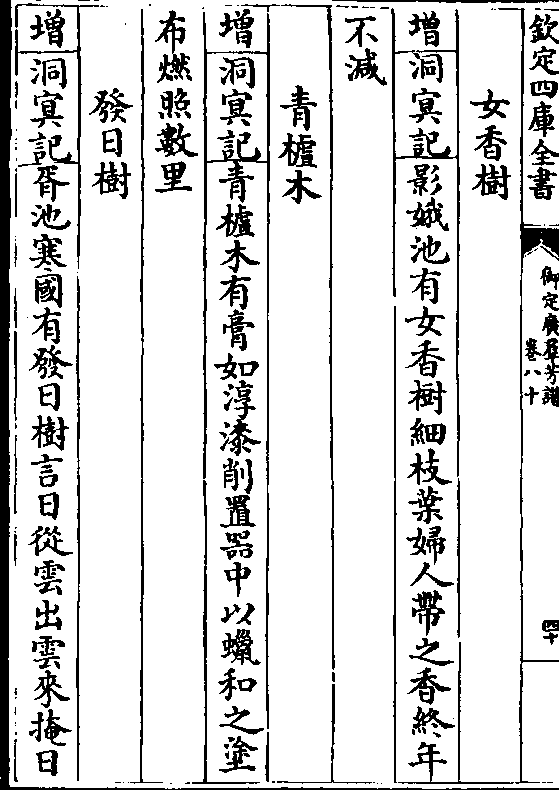 欽定四庫全書
御定廣羣芳譜
卷八十
四十
女香樹
增洞冥記影娥池有女香樹細枝葉婦人帶之香終年
不減
青櫨木
增洞冥記青櫨木有膏如淳漆削置器中以蠟和之塗
布燃照數里
發日樹
增洞冥記胥池寒國有發日樹言日從雲出雲來掩日